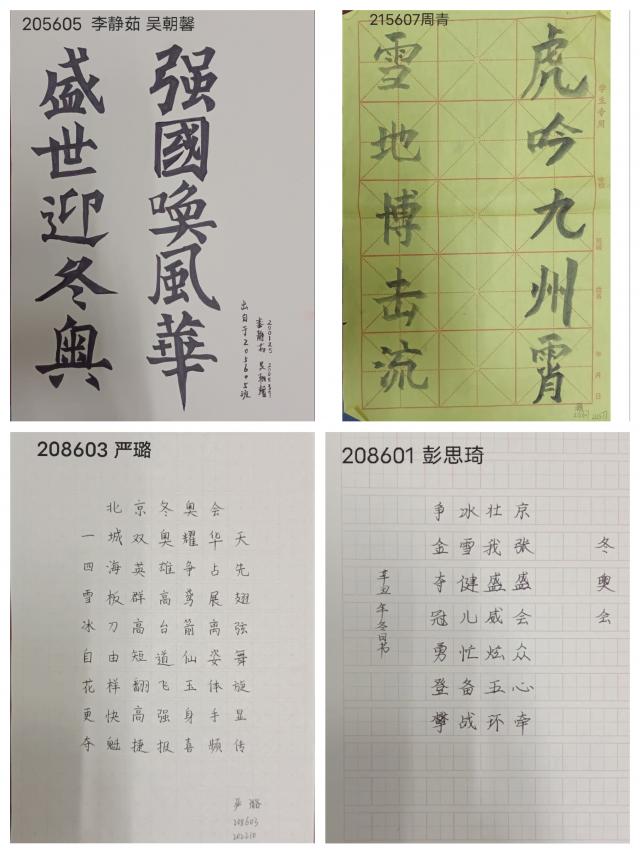 205605 李静茹 吴朝馨
强國唤風華
盛世迎冬奥
李静茹 吴朝馨
出自于205605班
215607周青
学生专用
年 月 日
虎吟九州霄
雪地博击流
208603 严璐
北京冬奥会
一城双奥耀华天
四海英雄争占先
雪板群高鸢展翅
冰刀高台箭离弦
自由短道仙姿舞
花样翻飞玉体旋
更快高强身手显
夺魁捷报喜频传
严璐
208603
202210
208601 彭思琦
冬奥会
京张盛会众心牵
壮我盛威炫五环
冰雪健儿忙备战
争金夺冠勇登攀
辛丑年冬日书